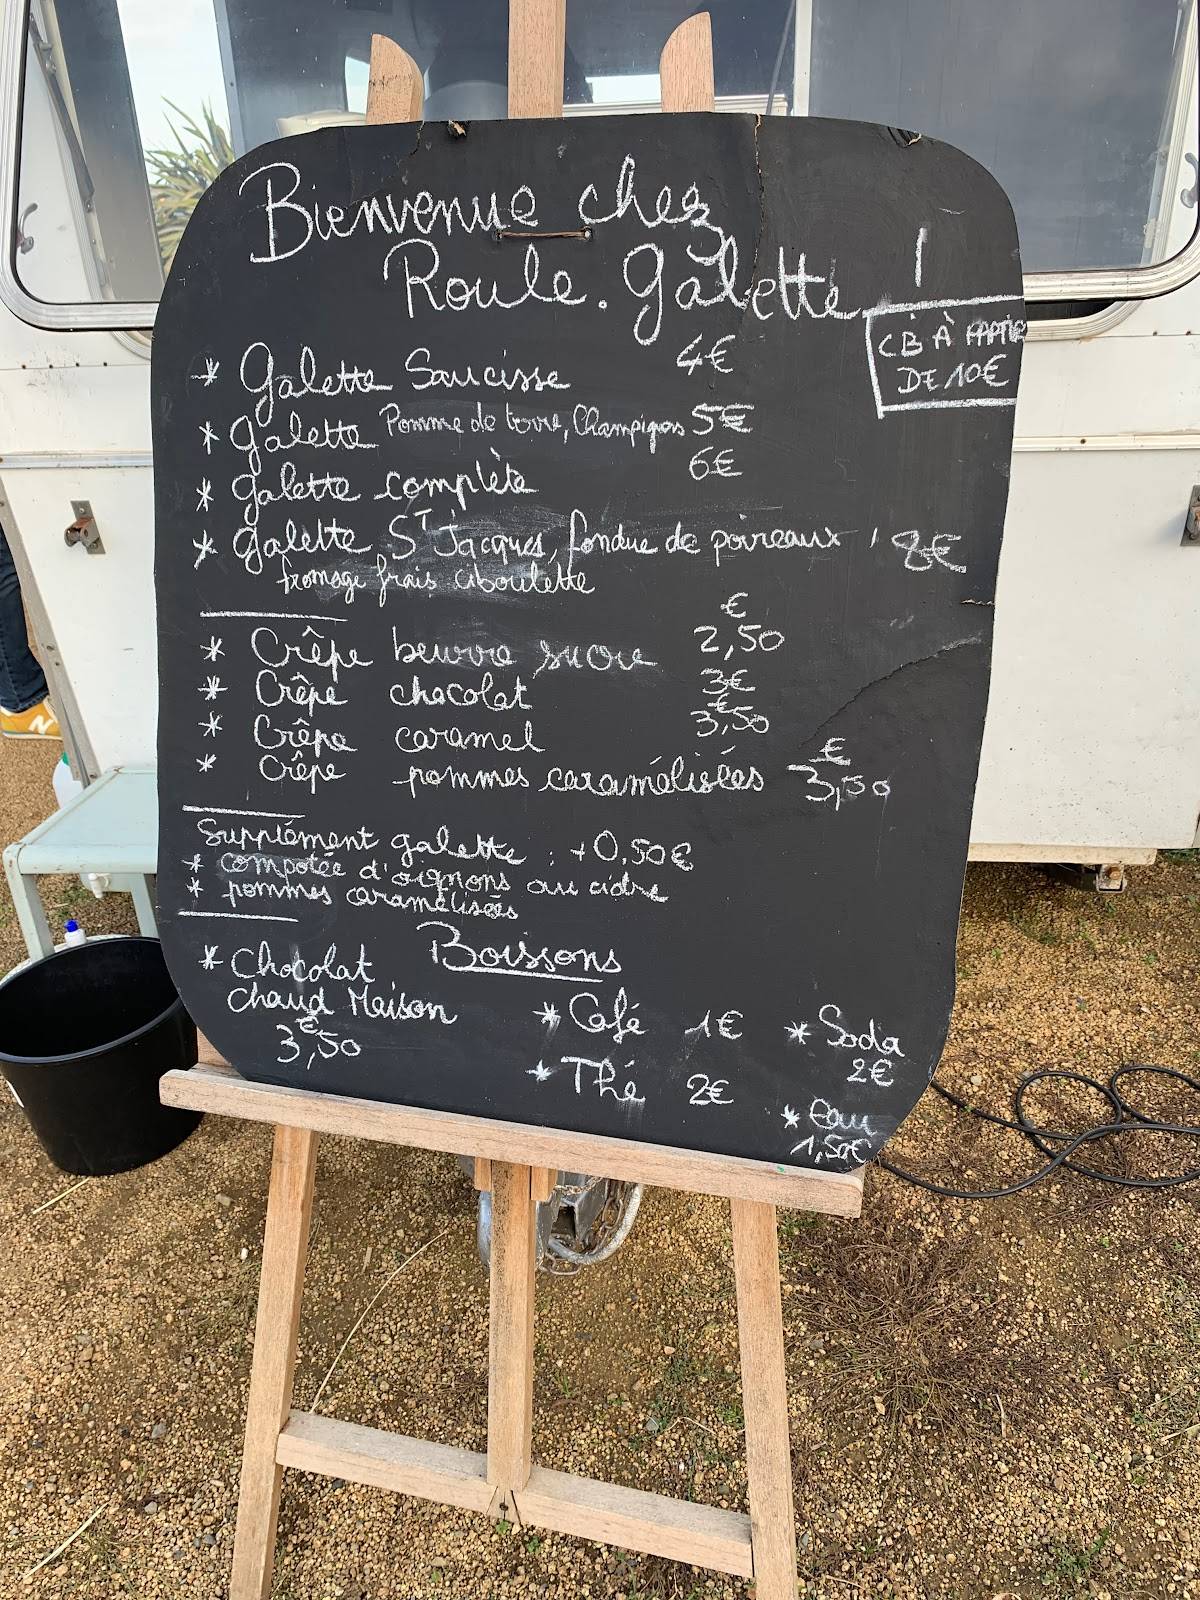 Bienvenue chez
Roule.galette !
CB À PARTIR
DE 10€
* Galette Saucisse 4€
* galette Pomme de terre, Champignons 5€
* galette complète 6€
* galette ST Jacques, fondue de poireaux, 8€
fromage frais ciboulette
* Crêpe beurre sucre 2,50 €
* Crêpe chocolat 3€
* Crêpe caramel 3,50 €
* Crêpe pommes caramélisées 3,50 €
Supplément galette : +0,50€
* compotée d'oignons au cidre
* pommes caramélisées
Boissons
* Chocolat
chaud Maison
3,50 €
* Café 1€
* Thé 2€
* Soda
2€
* Eau
1,50€